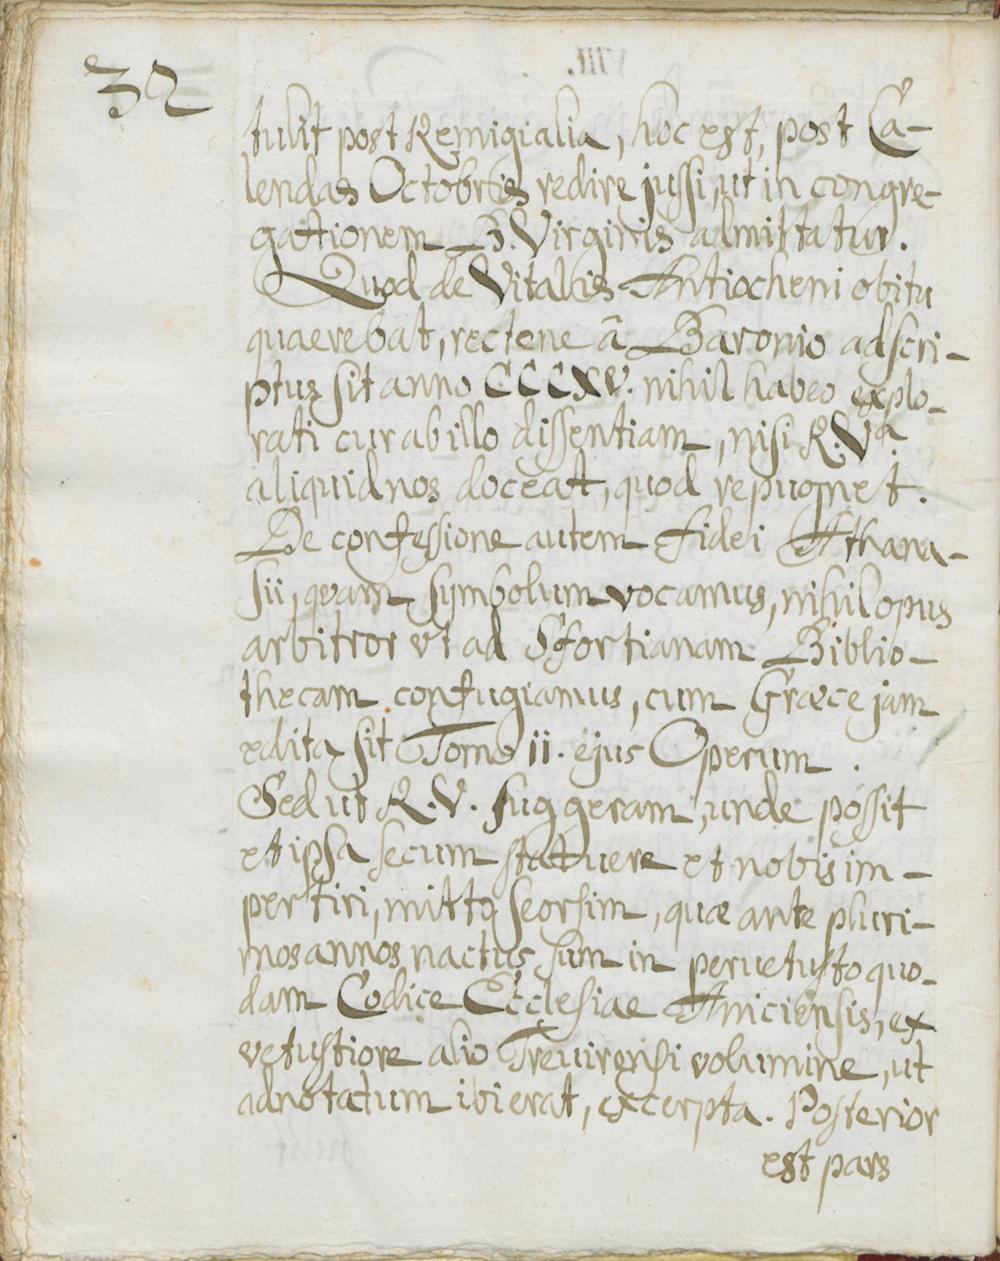 32
tulit post Remigialia, hoc est, post Ca-
lendas Octobris redire jussi, ut in congre-
gationem B. Virginis admittatur.
Quod de Vitalis Antiocheni obitu
quaerebat, rectene â Baronio adscri-
ptus sit anno CCCXV. nihil habeo explo-
rati cur ab illo dissentiam, nisi R. Vª.
aliquid nos doceat, quod repugnet.
De confessione autem fidei Athana-
sii, quam symbolum vocamus, nihil opus
arbitror vt ad Sfortianam Biblio-
thecam confugiamus, cum Græce jam
edita sit Tomo ii. ejus Operum.
Sed ut R. V. suggeram, unde possit
et ipsa secum statuere et nobis im-
pertiri, mitto seorsim, quæ ante pluri-
mos annos nactus sum in peruetusto quo-
dam Codice Ecclesiae Aniciensis, ex
vetustiore alio Treuirensi volumine, ut
adnotatum ibi erat, excerpta. Posterior
est pars